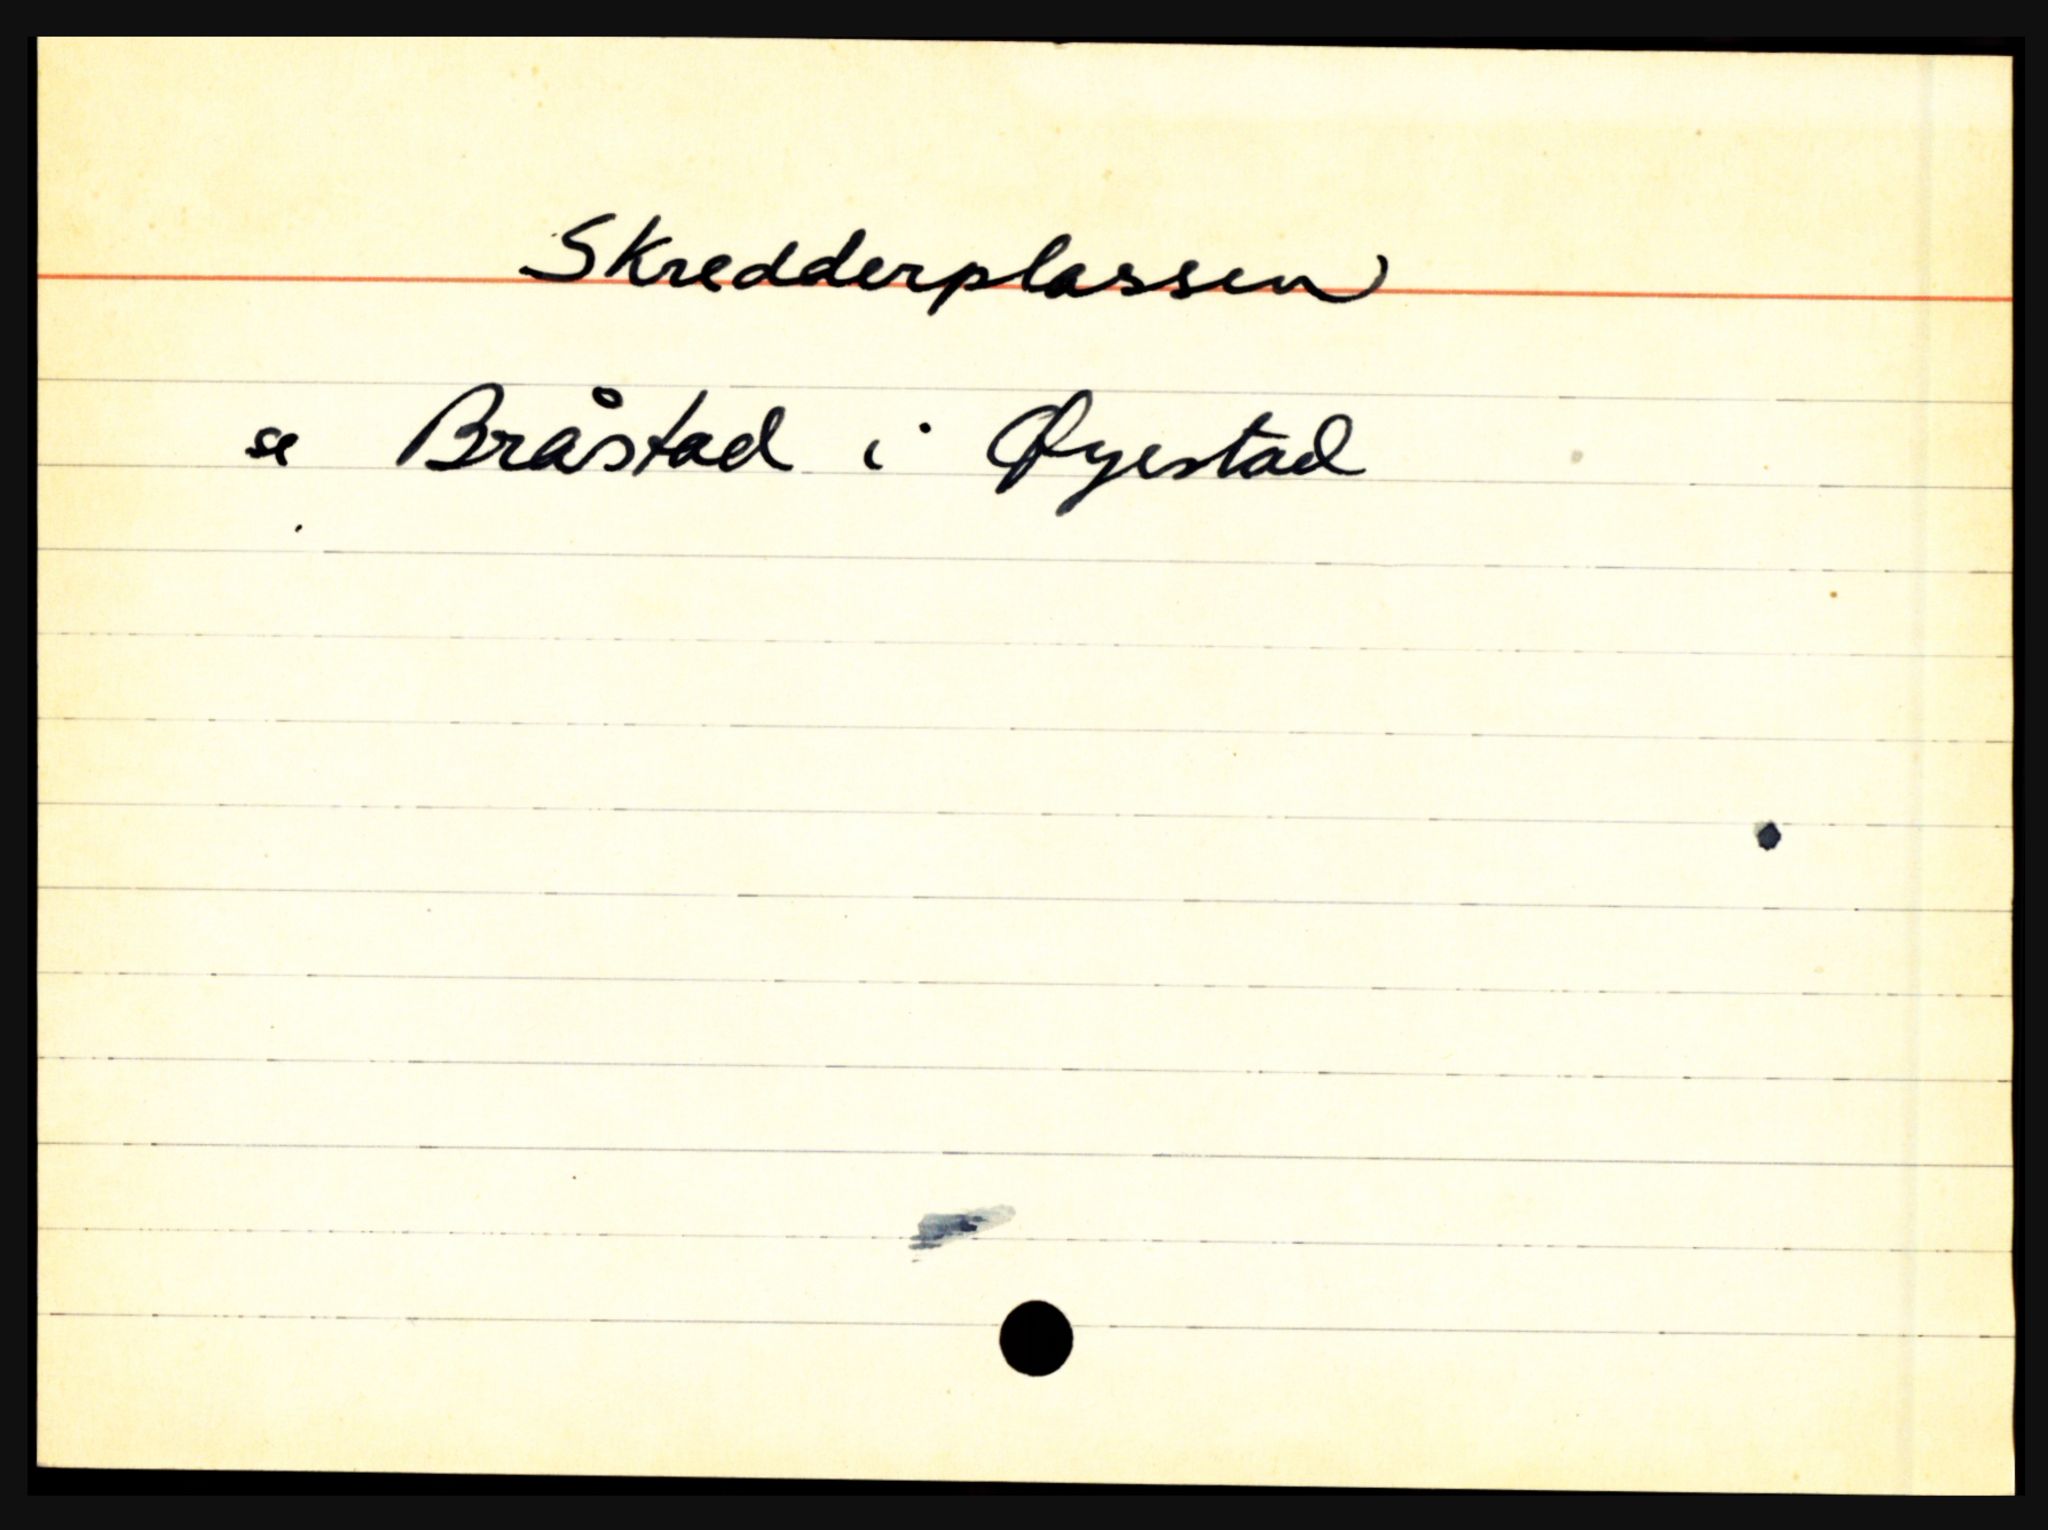 Skredderplassen
se Bråstad i Øyestad